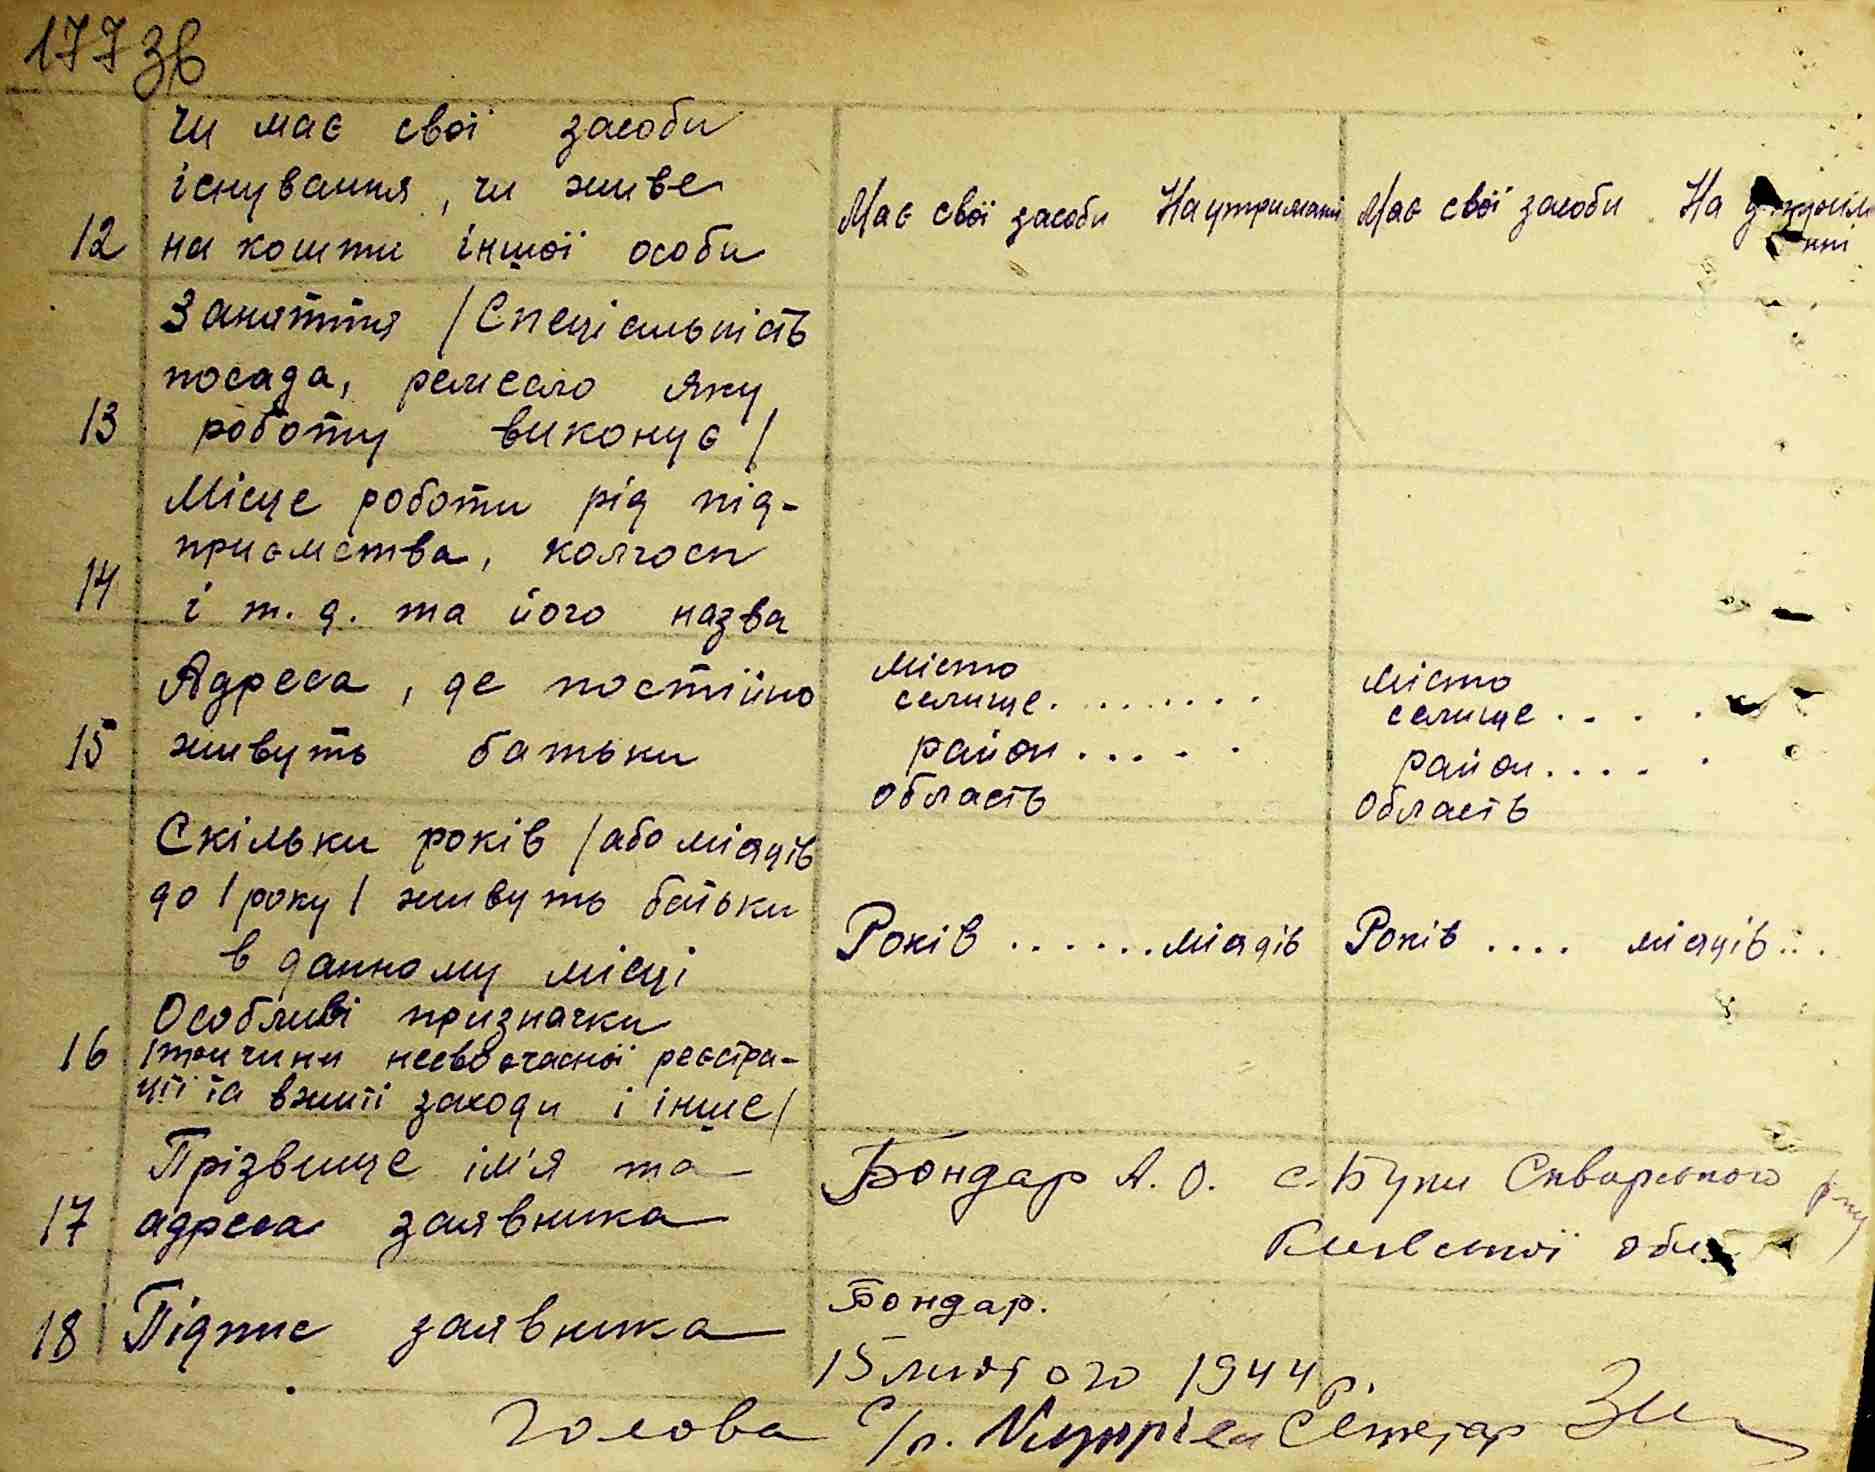 177 зв
Чи має свої засоби
існування, чи живе
12 на кошти іншої особи
Має свої засоби На утриманні Має свої засоби На
нні
Заняття /Спеціальність
посада, ремесло яку
13 роботу виконує/
Місце роботи рід під-
приємства, колгосп
14 і т. д. та його назва
Адреса, де постійно
15 живуть батьки
місто
селище.........
район.....
область
місто
селище....
район.....
область
Скільки років /або місяців
до 1 року/ живуть батьки
в данному місці
Років.......місяців Років.... місяців...
Особливі призначки
16 /причини несвоєчасної реєстра-
ції та вжиті заходи і інше/
Прізвище ім'я та
17 адреса заявника
Бондар А. О. с. Буки Сквирського р-ну
Київської обл
18 Підпис заявника
Бондар.
15 лютого 1944 р.
Голова с/р. Секретар